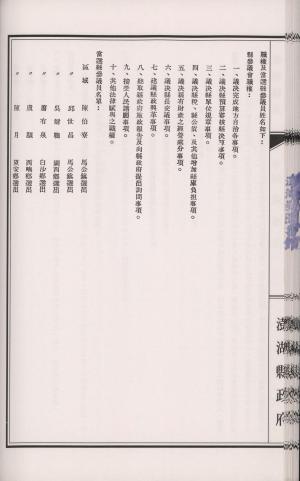 職權及當選縣參議員姓名如下：
縣參議會職權：
一、議決完成地方自治各事項。
二、議決縣預算審核縣決算事項。
三、議決縣單位規章事項。
四、議決縣稅、縣公債、及其他增加縣庫負擔事項。
五、議決縣有財產之經營處分事項。
六、議決縣長交議事項。
七、建議縣政興革事項。
八、聽取縣政府施政報告及向縣政府提出詢問事項。
九、接受人民請願事項。
十、其他法律賦與之職權。
當選縣參議員名單：
區域 陳伯寮 馬公鎮選出
〃 邱世昌 馬公鎮選出
〃 吳 湖西鄉選出
〃 蕭有泉 白沙鄉選出
〃 盧顯 西嶼鄉選出
〃 陳月 望安鄉選出
澎湖縣政府